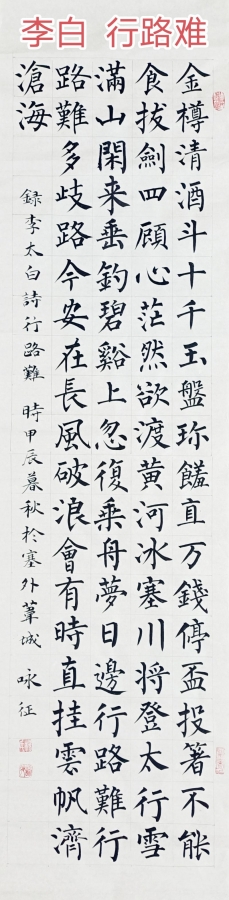 李白 行路难
金樽清酒斗十千玉盤珎饈直万錢停盃投箸不能
食拔劍四顧心茫然欲渡黄河冰塞川将登太行雪
滿山閑来垂釣碧谿上忽復乗舟夢日邊行路難行
路難多歧路今安在長風破浪會有時直挂雲帆濟
滄海
録李太白詩行路難 時甲辰暮秋於塞外葦城 咏征